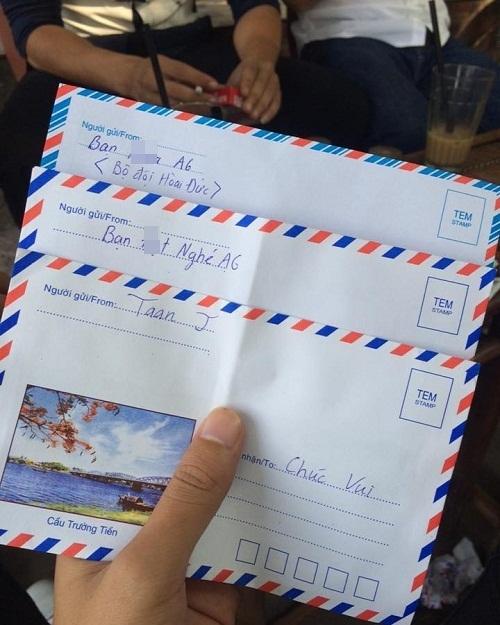 Người gửi/From:
Bạn A6
< Bộ đội Hoài Đức >
TEM
STAMP
Người gửi/From:
Bạn t Nghé A6
TEM
STAMP
Người gửi/From: Taan J
TEM
STAMP
nhận/To: Chúc Vui
Cầu Trường Tiền